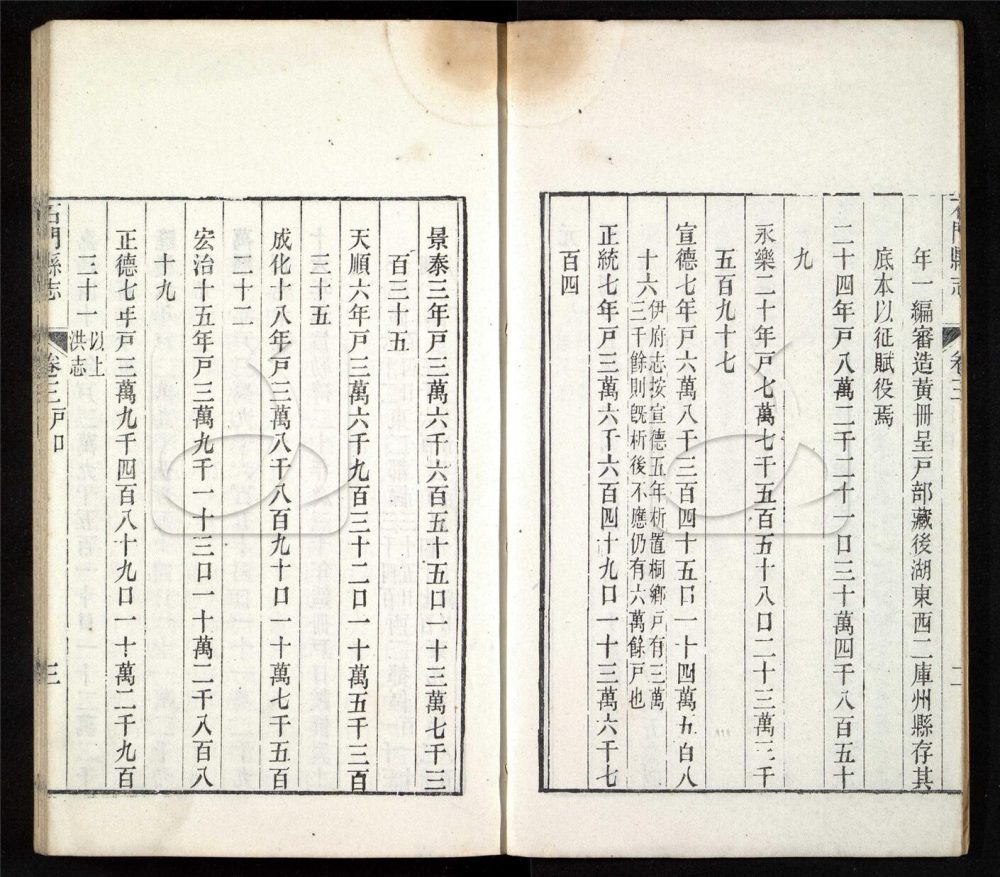 石門縣志
卷三
二
年一編審造黃冊呈戸部藏後湖東西二庫州縣存其
底本以征賦役焉
二十四年戸八萬二千二十一口三十萬四千八百五十
九
永樂二十年戸七萬七千五百五十八口二十三萬三千
五百九十七
宣德七年戸六萬八千三百四十五口一十四萬五百八
十六
伊府志按宣德五年析置桐鄉戸有三萬
三千餘則旣析後不應仍有六萬餘戸也
正統七年戸三萬六千六百四十九口一十三萬六千七
百四
景泰三年戸三萬六千六百五十五口一十三萬七千三
百三十五
天順六年戸三萬六千九百三十二口一十萬五千三百
三十五
成化十八年戸三萬八千八百九十口一十萬七千五百
二十二
宏治十五年戸三萬九千一十三口一十萬二千八百八
十九
正德七年戸三萬九千四百八十九口一十萬二千九百
三十一
以上
洪志
石門縣志
卷三戸口
三